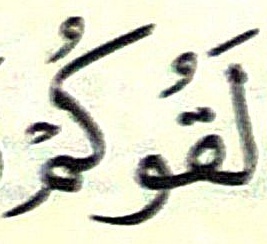 لَقُوكُمْ